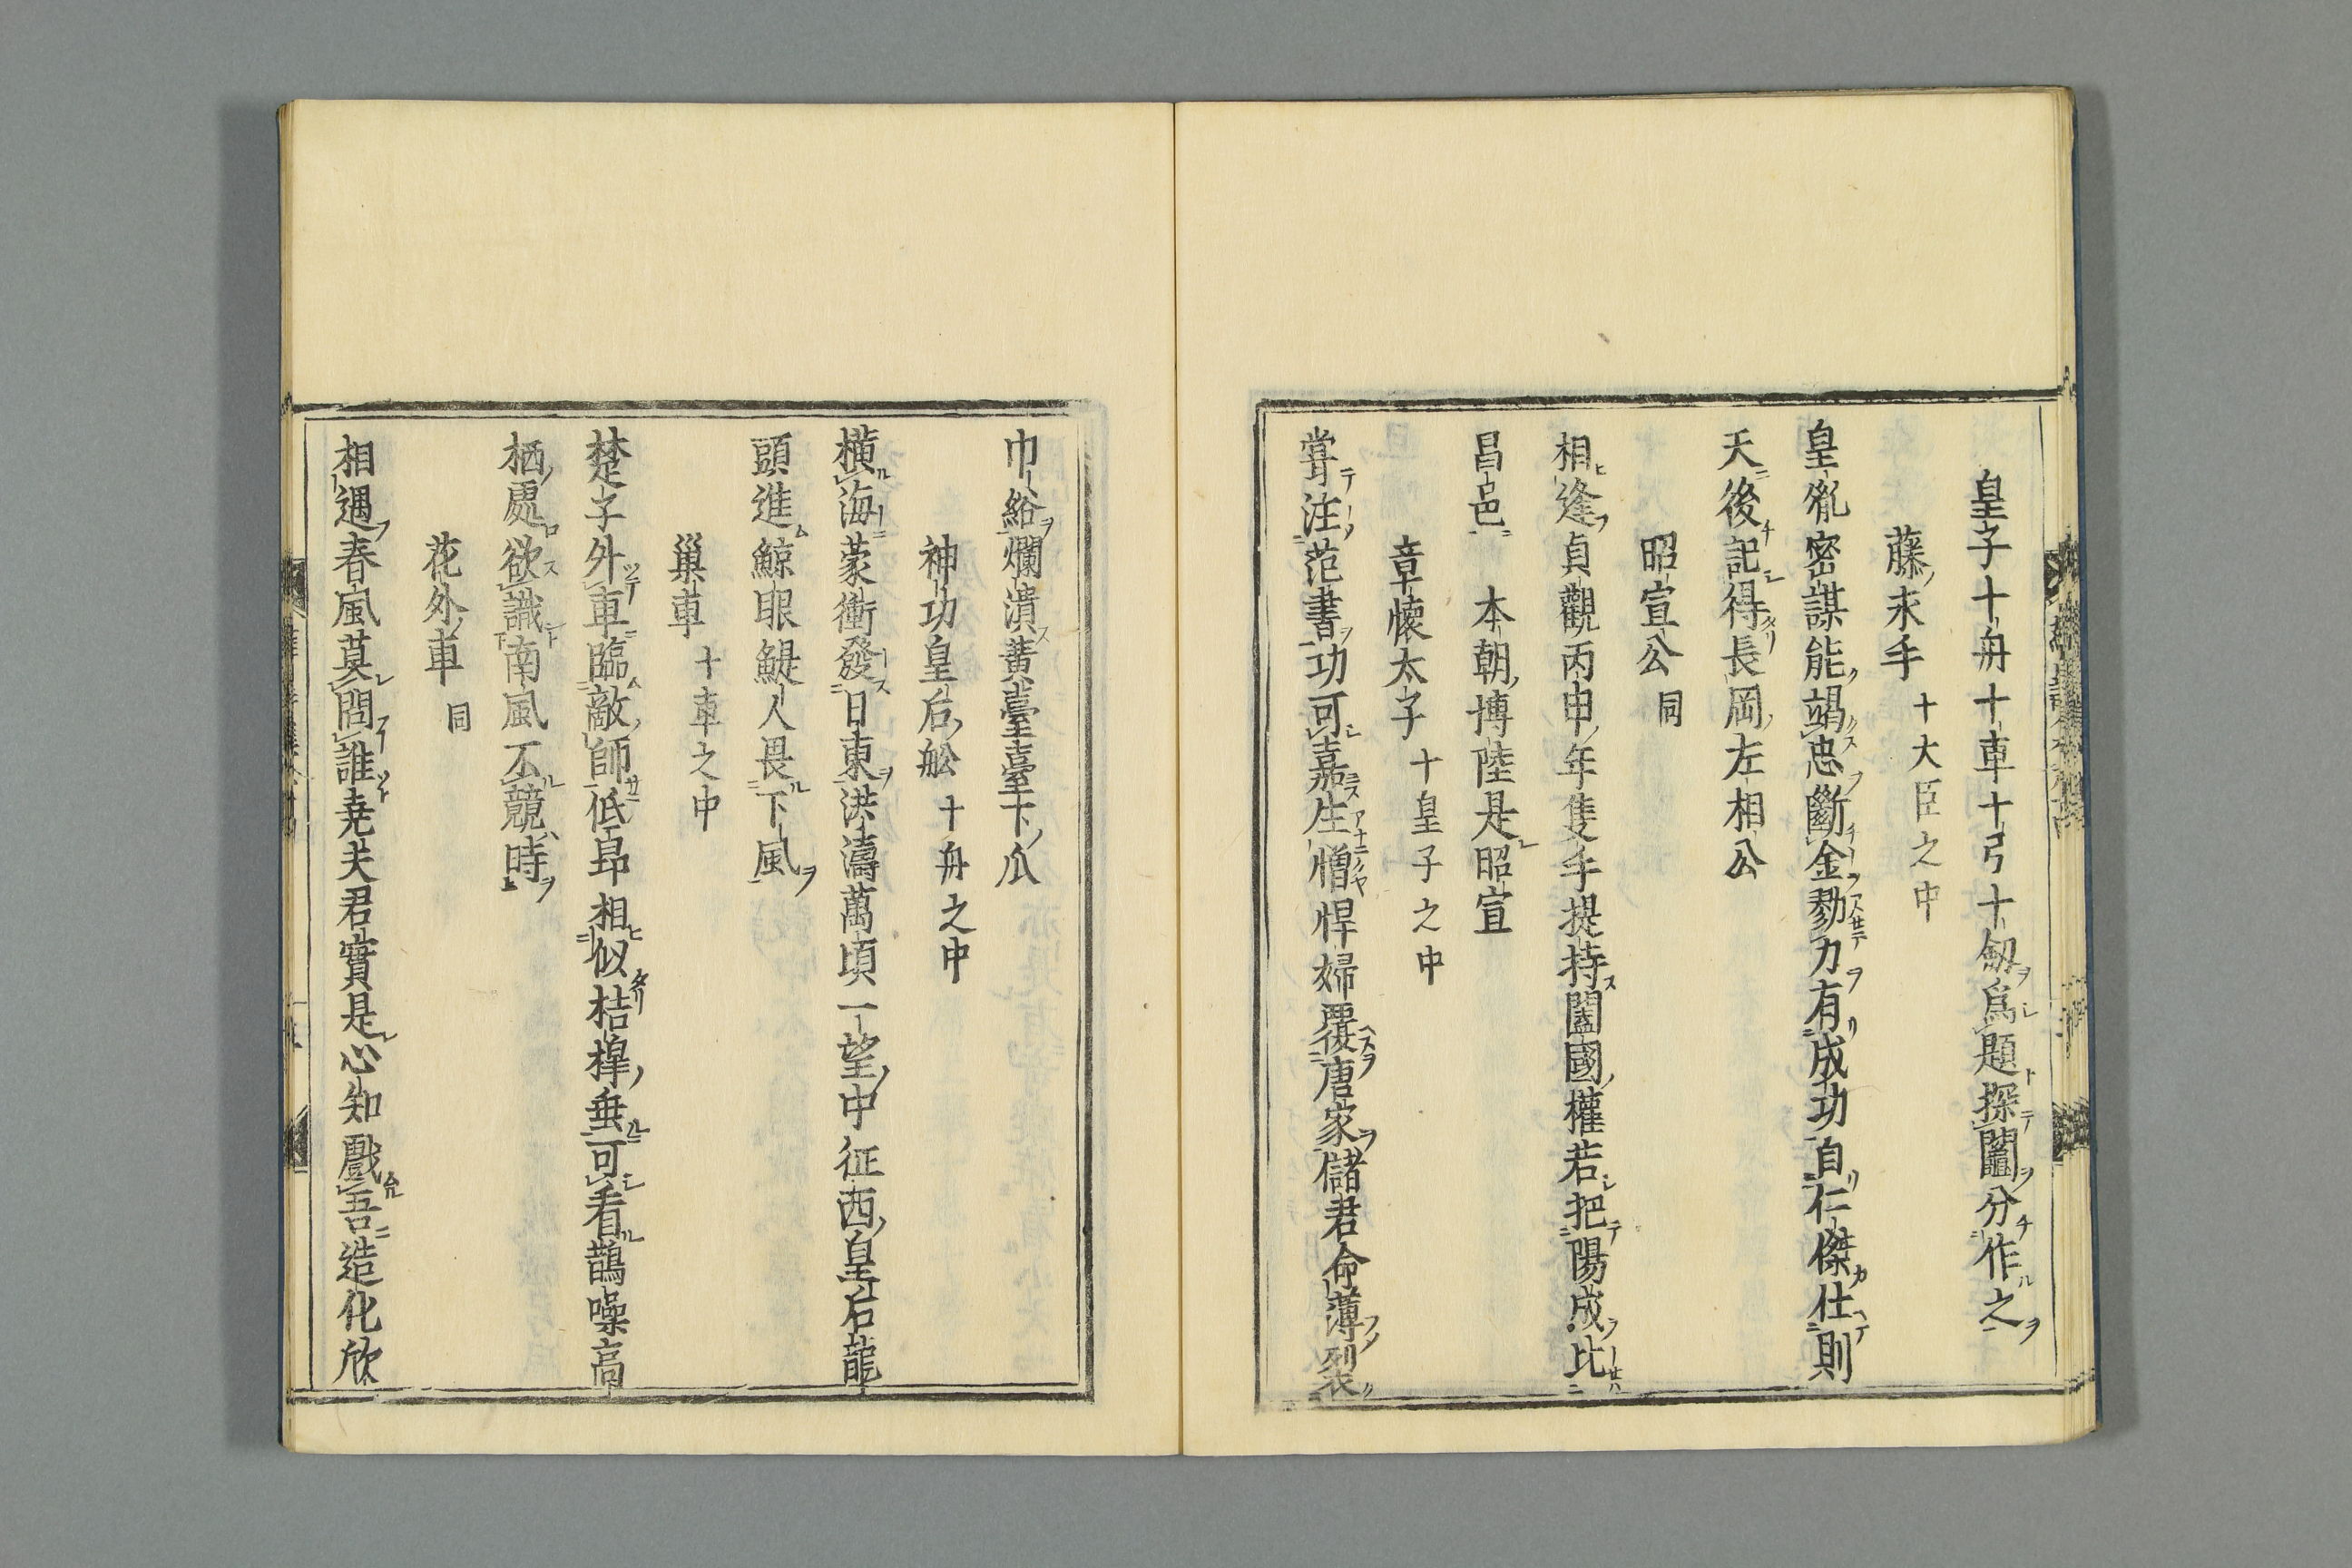 皇子十舟十車十弓十劔爲題探鬮分作之
藤永手 十大臣之中
皇胤密謀能竭忠斷金勠力有成功自仁傑仕則
天後記得長岡左相公
昭宣公 同
相逢貞觀丙申年隻手提持闔國權若把陽成比
昌邑 本朝博陸是昭宣
章懷太子 十皇子之中
嘗注范書功可嘉生憎悍婦覆唐家儲君命薄裂
巾綌爛潰黄臺臺下瓜
神功皇后舩 十舟之中
橫海蒙衝發日東洪濤萬頃一望中征西皇后龍
頭進鯨眼鯷人畏下風
巢車 十車之中
楚子外車臨敵師低昂相似桔槹垂可看鵲噪高
栖處欲識南風不競時
花外車 同
相遇春風莫問誰尭夫君實是心知戲吾造化欣